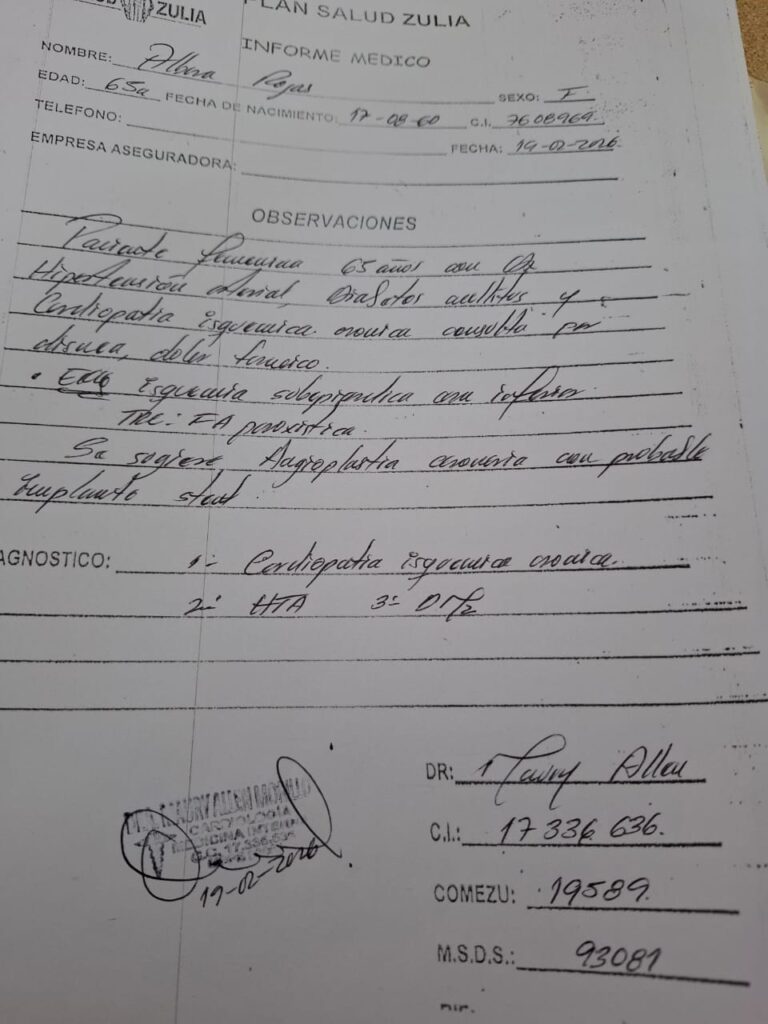 ZULIA
PLAN SALUD ZULIA
INFORME MEDICO
NOMBRE: Rojas SEXO: F
EDAD: 65a FECHA DE NACIMIENTO: 17-08-60 C.I. 7608969.
TELEFONO: FECHA: 19-02-2026.
EMPRESA ASEGURADORA:
OBSERVACIONES
Paciente femenina 65 años con Dx
Hipertensión arterial, Diabetes mellitus y
Cardiopatia isquemica cronica consulta por
disnea, dolor toracico.
• EKG isquemia subepicardica cara inferior.
FA paroxistica.
Se sugiere Angioplastia coronaria con probable
Implante stent.
AGNOSTICO: 1- Cardiopatia isquemica cronica.
2- HTA 3- DM2
M AURY ALLEN MORILLO
CARDIOLOGÍA
MEDICINA INTERNA
C.I. 17.336.636
19-02-2026
DR: Maury Allen
C.I.: 17336636.
COMEZU: 19589.
M.S.D.S.: 93081
DIR.